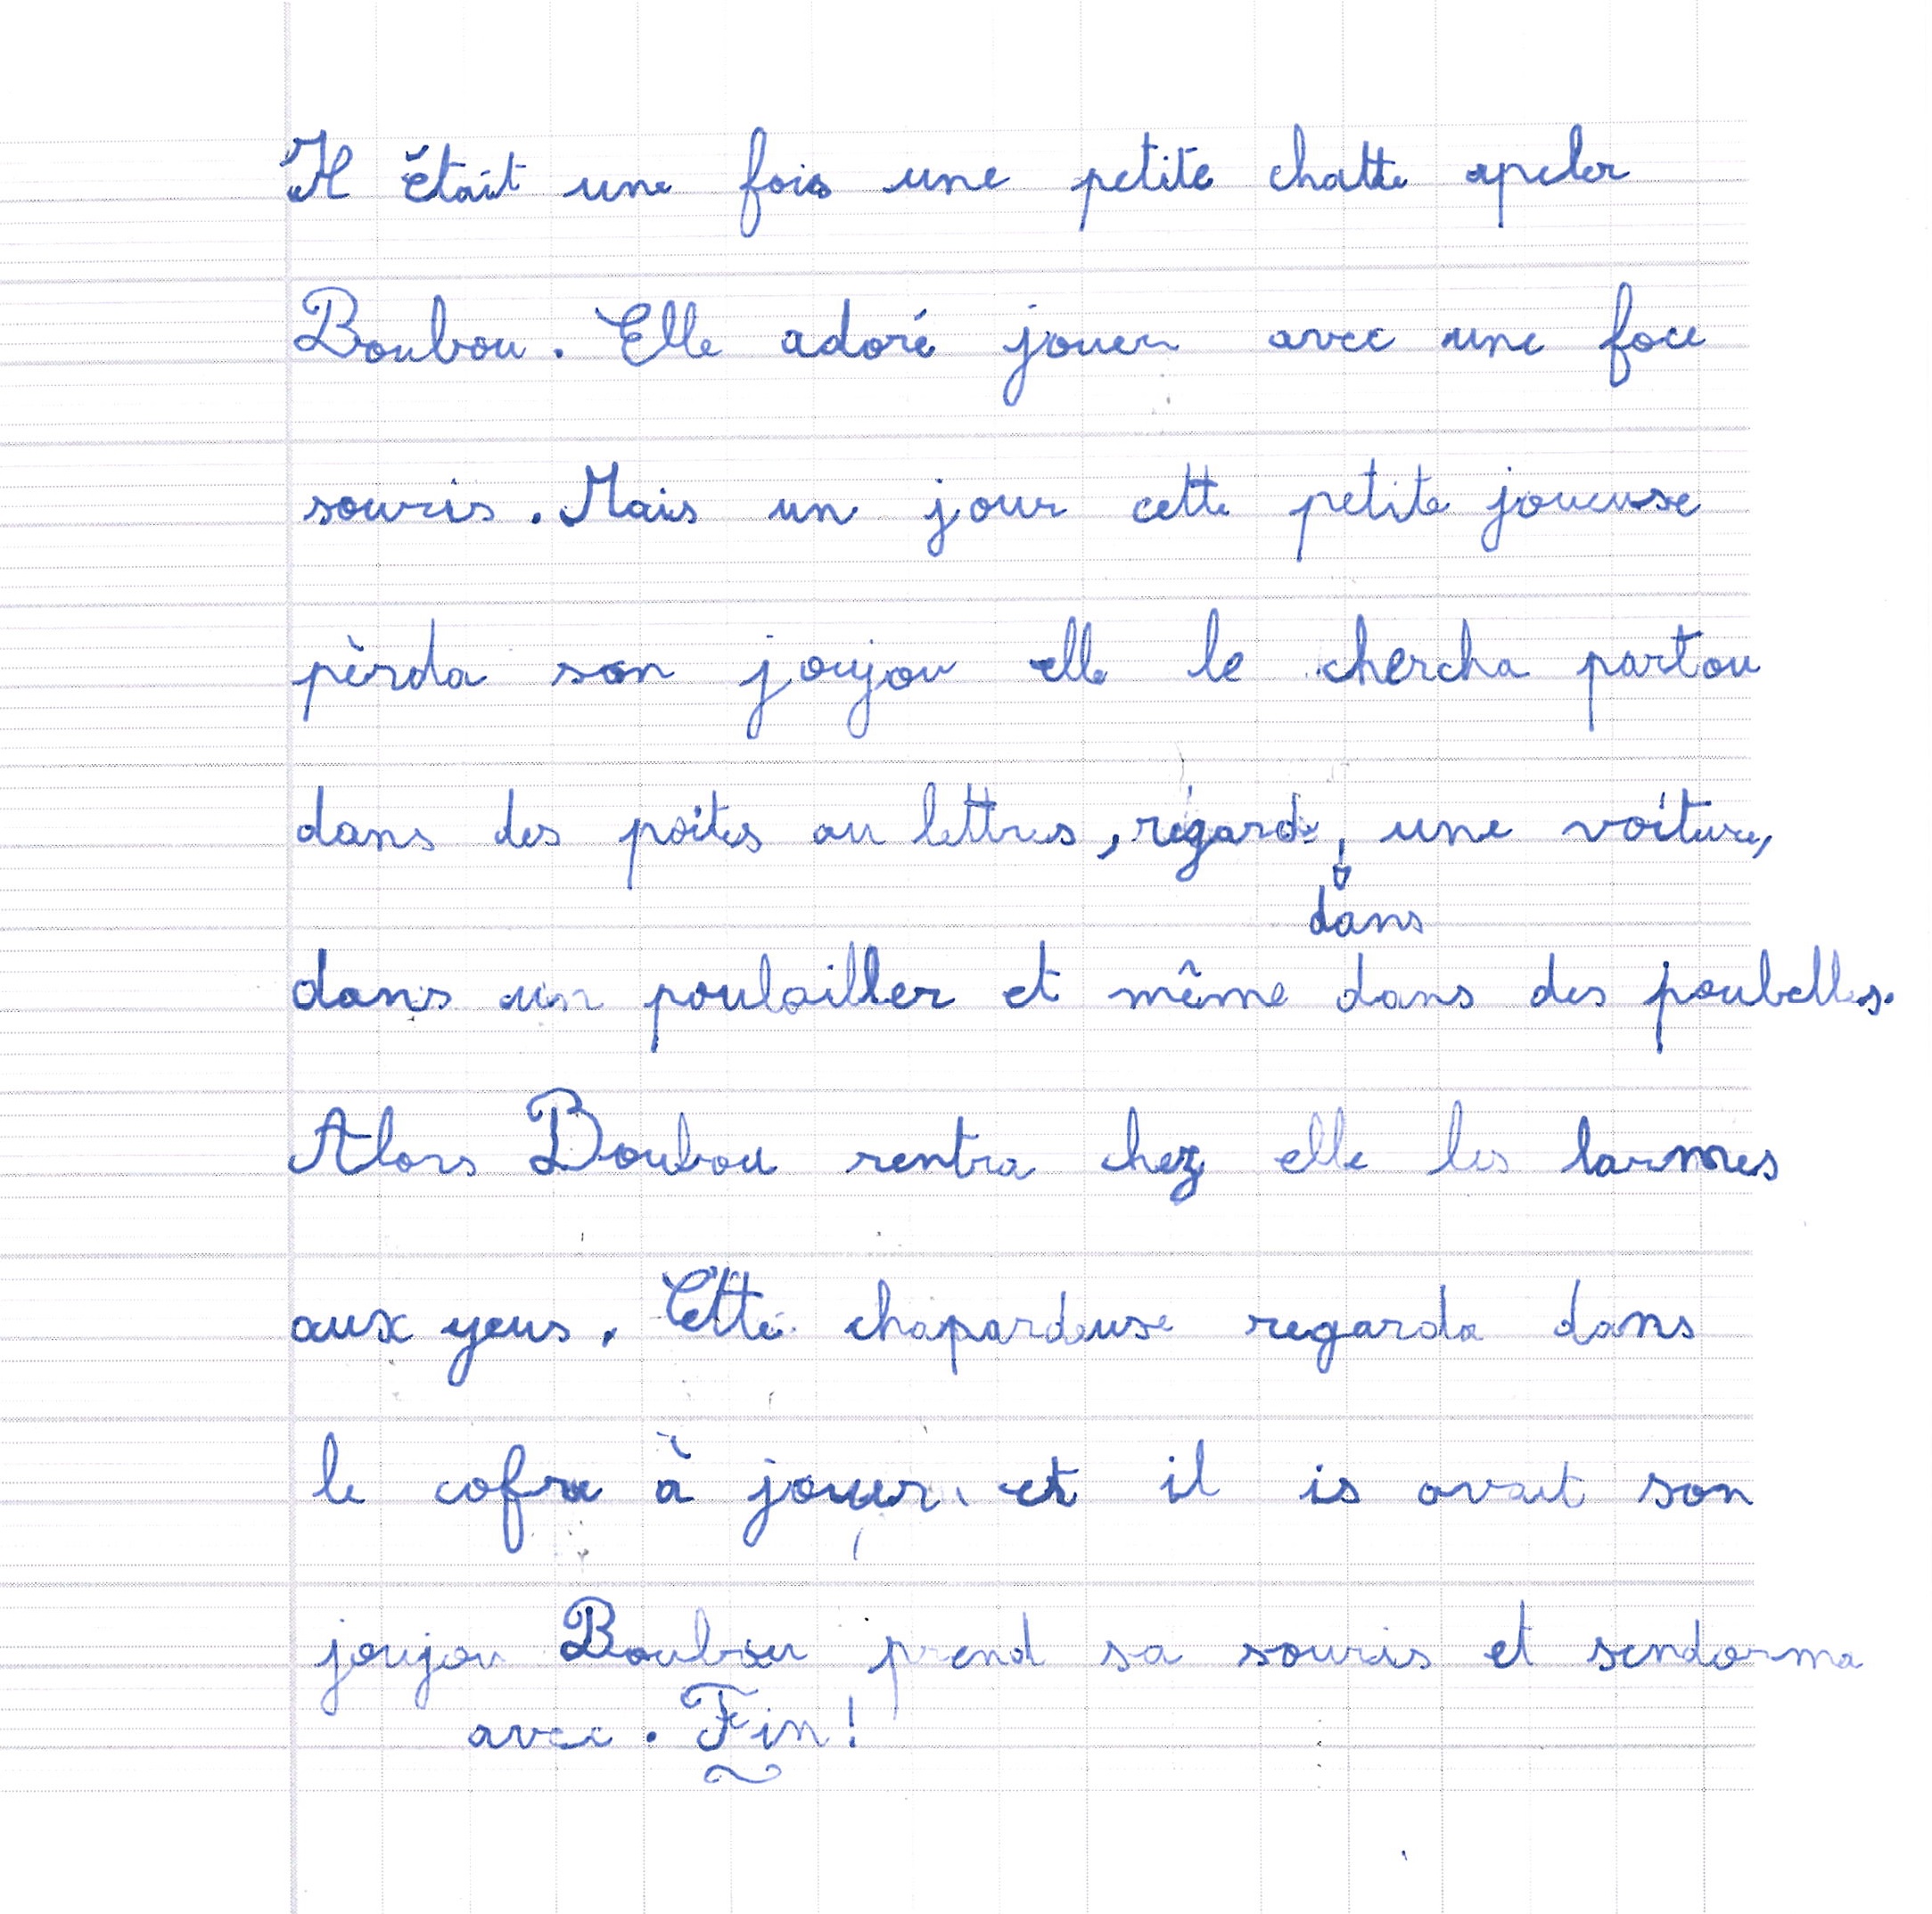 Il était une fois une petite chatte apeler
Boubou. Elle adoré jouer avec une foce
souris. Mais un jour cette petite joueuse
pèrda son joujou elle le chercha partou
dans des poites au lettres, régarde, une voiture,
dans
dans un poulailler et même dans des poubelles.
Alors Boubou rentra chez elle les larmes
aux yeus. Cette chapardeuse regarda dans
le cofre à jouer. et il is avait son
joujou Boubou prend sa souris et sendorma
avec. Fin!